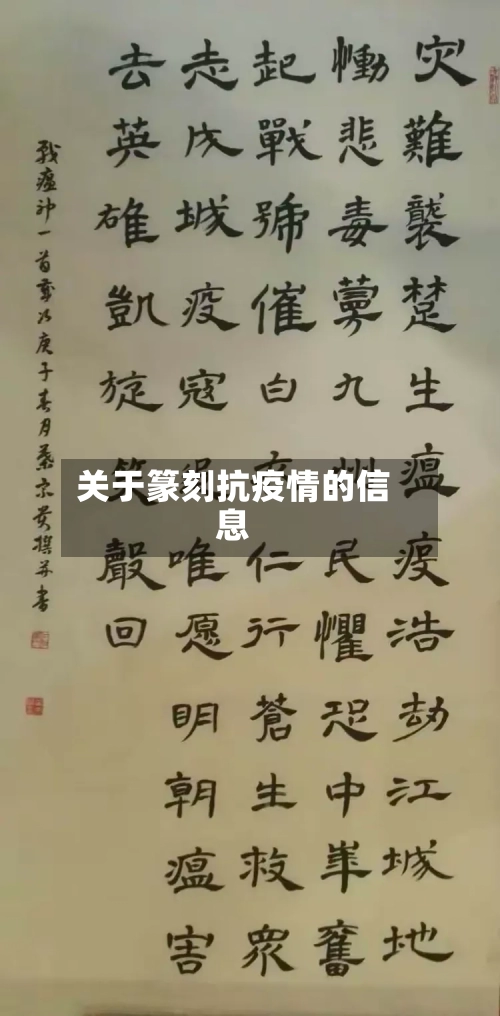 灾難襲楚生瘟疫浩劫江城地
慟悲毒九州民懼恐中華奮
起戰號催白衣仁行蒼生救眾
志成城疫寇唯愿明朝瘟害
去英雄凱旋笑聲回
戰瘟神一首歲次庚子春月京黄撰并書
关于篆刻抗疫情的信
息